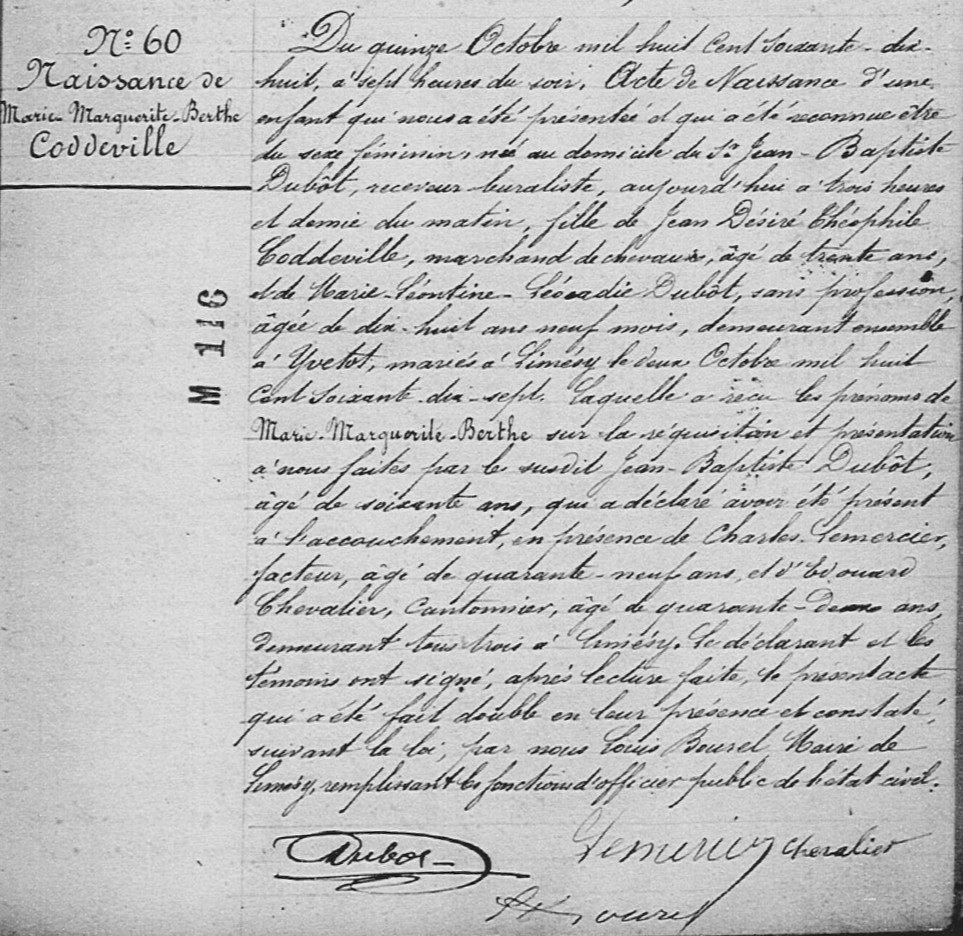 N°: 60
Naissance de
Marie-Marguerite-Berthe
Coddeville
M 116
Du quinze Octobre mil huit cent soixante-dix-
huit, à sept heures du soir. Acte de Naissance d'une
enfant qui nous a été présentée et qui a été reconnue être
du sexe féminin, née au domicile du Sr Jean-Baptiste
Dubôt, receveur-buraliste, aujourd'hui à trois heures
et demie du matin, fille de Jean Désiré Théophile
Coddeville, marchand de chevaux, âgé de trente ans,
et de Marie-Léontine-Léocadie Dubôt, sans profession,
âgée de dix-huit ans neuf mois, demeurant ensemble
à Yvetot, mariés à Limésy le deux Octobre mil huit
cent soixante-dix-sept. Laquelle a reçu les prénoms de
Marie-Marguerite-Berthe sur la réquisition et présentation
à nous faites par le susdit Jean-Baptiste Dubôt,
âgé de soixante ans, qui a déclaré avoir été présent
à l'accouchement, en présence de Charles Lemercier,
facteur, âgé de quarante-neuf ans, et d'Edouard
Chevalier, Cantonnier, âgé de quarante-deux ans,
demeurant tous trois à Limésy. Le déclarant et les
témoins ont signé, après lecture faite, le présent acte
qui a été fait double en leur présence et constaté,
suivant la loi, par nous Louis Bourel Maire de
Limésy, remplissant les fonctions d'officier public de l'état civil.
Dubot
Lemercier Chevalier
Bourel